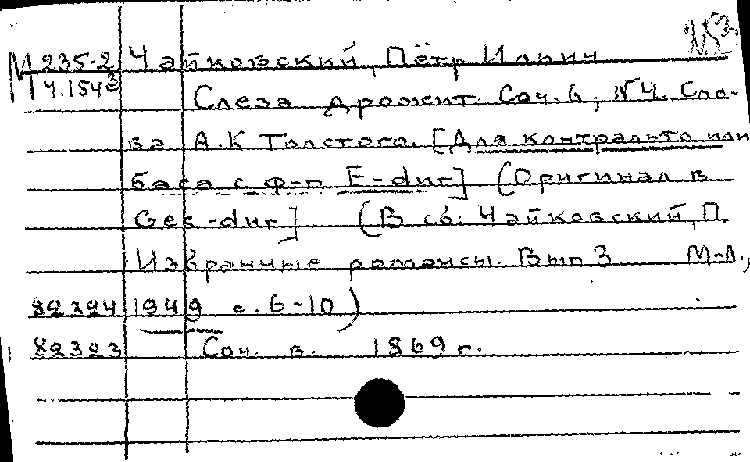 М 235-2 Чайковский, Пётр Ильич
Ч.154 Слеза дрожит. Соч. 6, №4. Сло-
ва А.К Толстого. [Для контральто или
баса с ф-п E-dur] (Оригинал в
Ges-dur] (В сб: Чайковский, П.
Избранные романсы. Вып 3 М-Л,
82324 1949 с. 6-10)
82323 Соч. в. 1869 г.